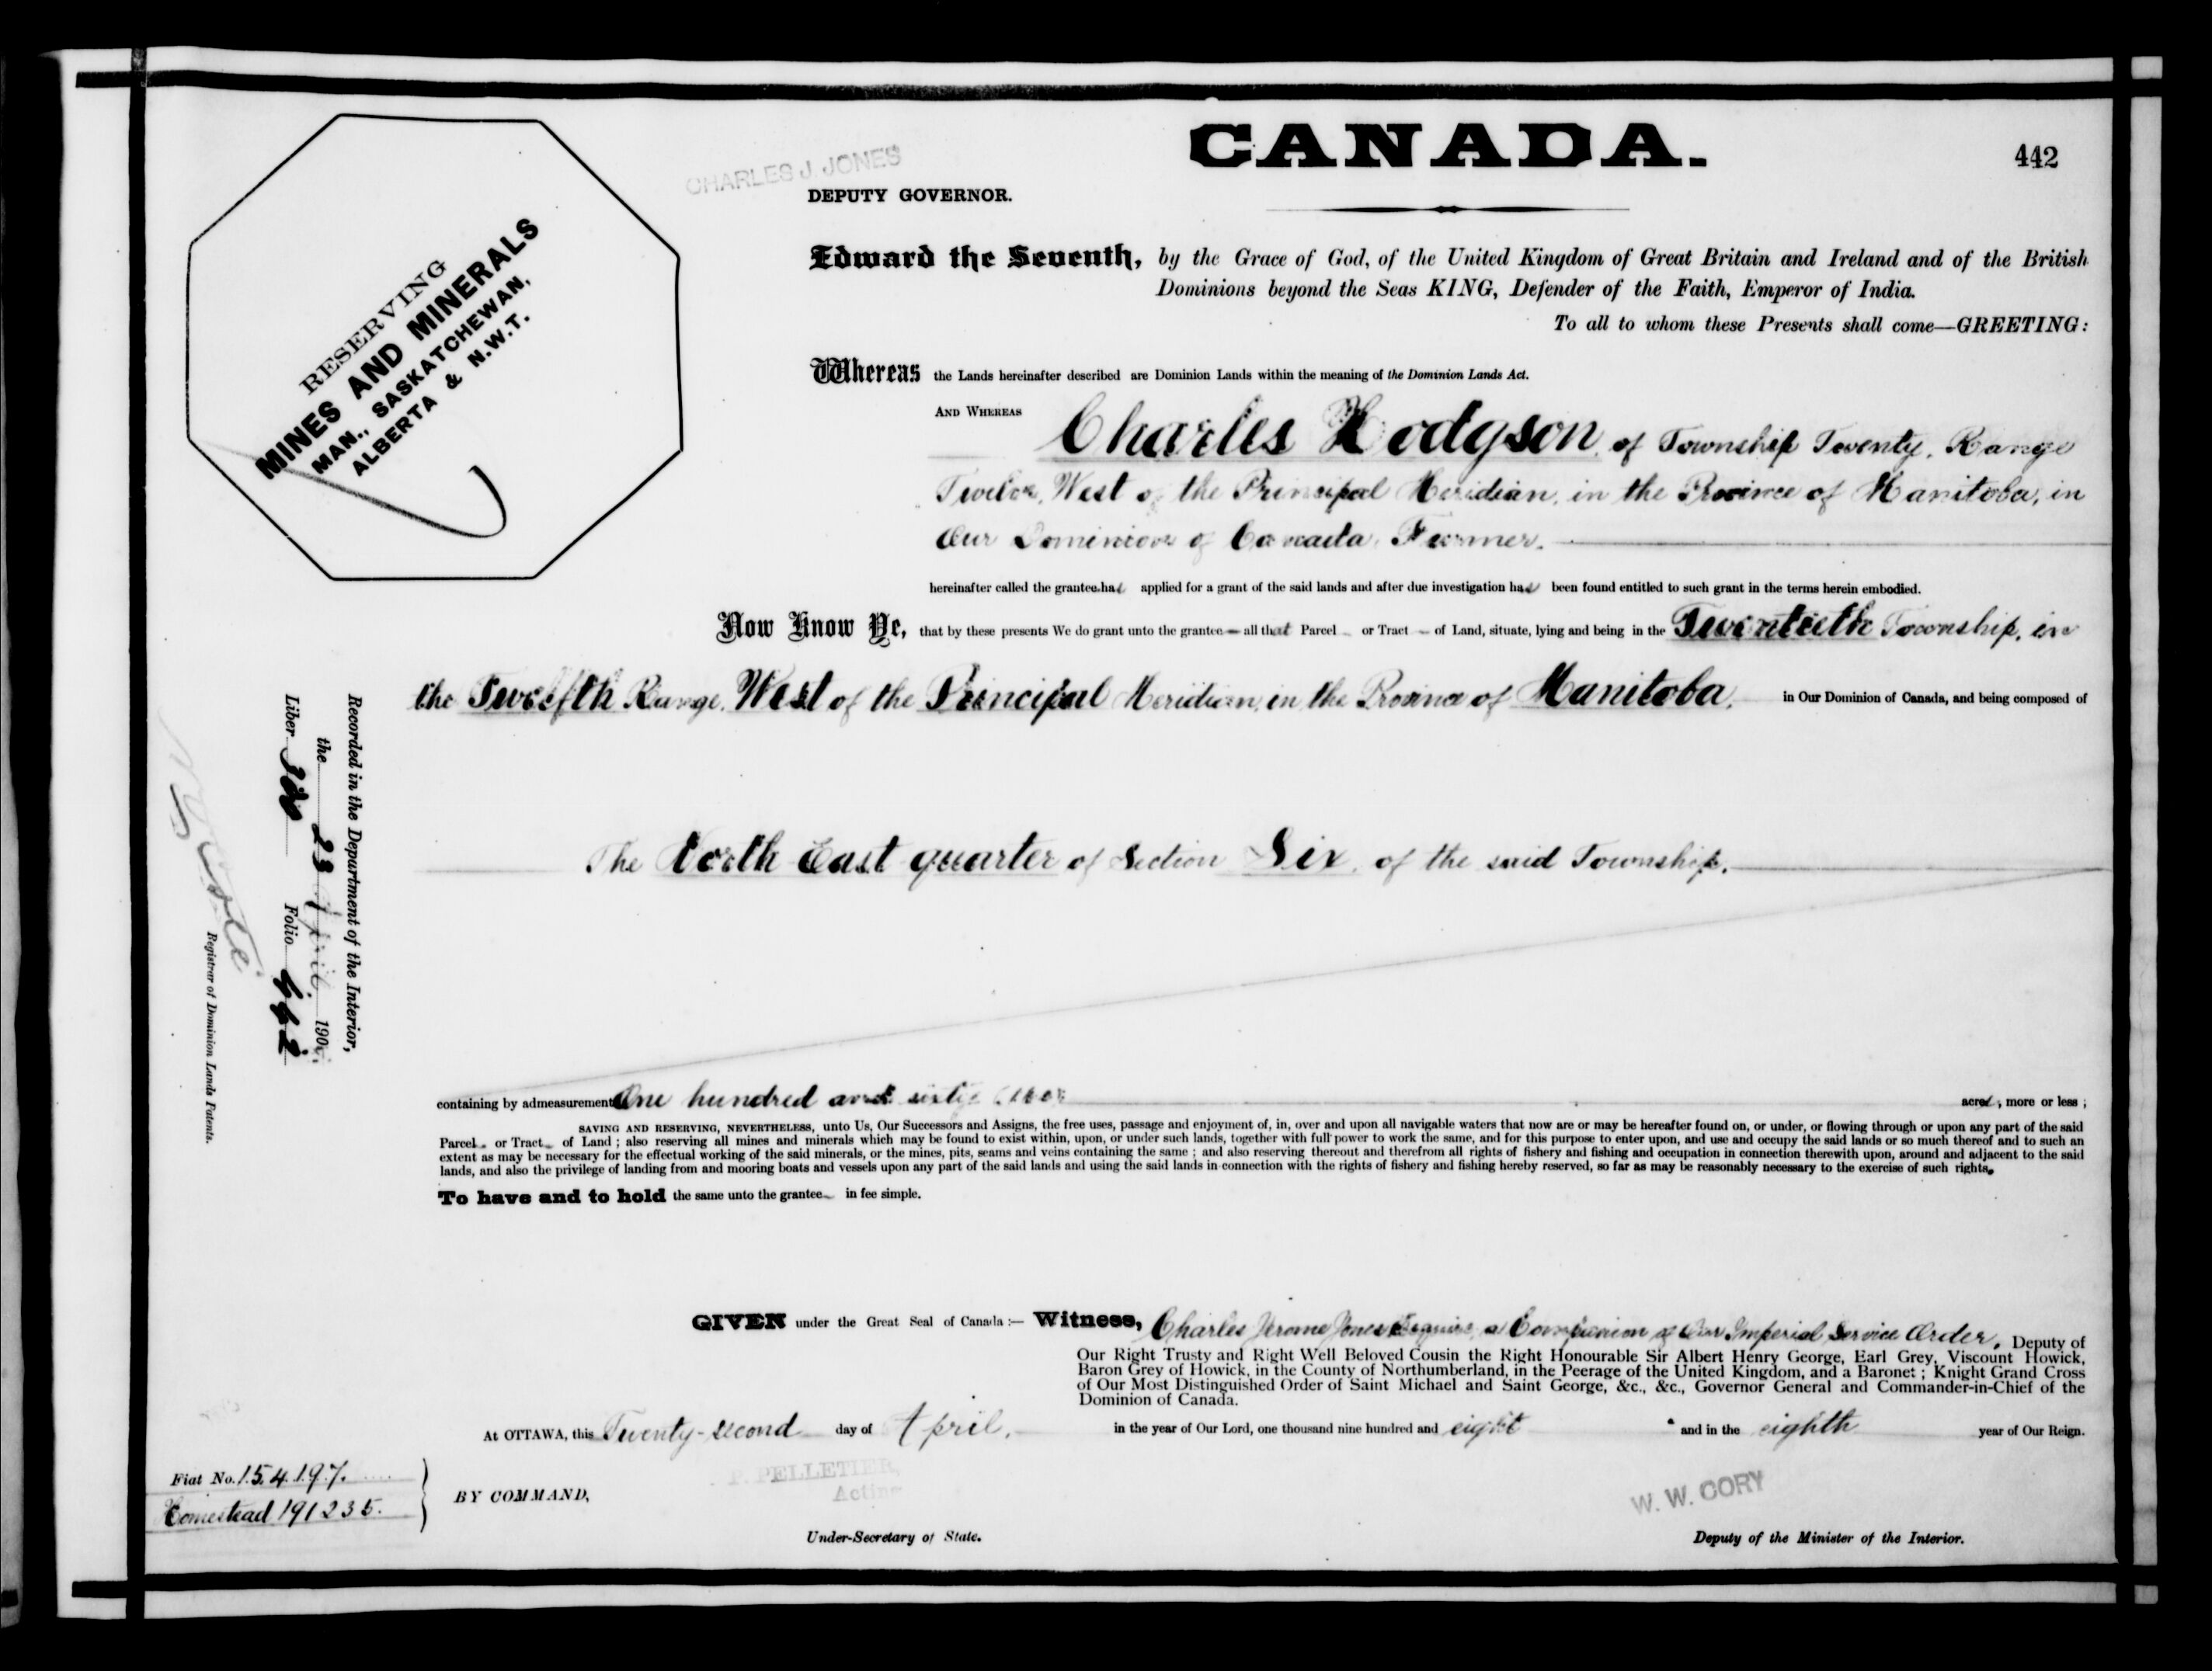 CANADA.
442
CHARLES J. JONES
DEPUTY GOVERNOR.
RESERVING
MINES AND MINERALS
MAN., SASKATCHEWAN,
ALBERTA & N.W.T.
Edward the Seventh, by the Grace of God, of the United Kingdom of Great Britain and Ireland and of the British
Dominions beyond the Seas KING, Defender of the Faith, Emperor of India.
To all to whom these Presents shall come—GREETING:
Whereas the Lands hereinafter described are Dominion Lands within the meaning of the Dominion Lands Act.
AND WHEREAS Charles Hodgson, of Township Twenty, Range
Twelve, West of the Principal Meridian, in the Province of Manitoba, in
Our Dominion of Canada, Farmer.
hereinafter called the grantee has applied for a grant of the said lands and after due investigation has been found entitled to such grant in the terms herein embodied.
Now Know Ye, that by these presents We do grant unto the grantee all that Parcel or Tract of Land, situate, lying and being in the Twentieth Township, in
the Twelfth Range, West of the Principal Meridian, in the Province of Manitoba, in Our Dominion of Canada, and being composed of
The North East quarter of Section Six, of the said Township.
containing by admeasurement One hundred and sixty acres acres, more or less;
SAVING AND RESERVING, NEVERTHELESS, unto Us, Our Successors and Assigns, the free uses, passage and enjoyment of, in, over and upon all navigable waters that now are or may be hereafter found on, or under, or flowing through or upon any part of the said
Parcel or Tract of Land; also reserving all mines and minerals which may be found to exist within, upon, or under such lands, together with full power to work the same, and for this purpose to enter upon, and use and occupy the said lands or so much thereof and to such an
extent as may be necessary for the effectual working of the said minerals, or the mines, pits, seams and veins containing the same; and also reserving thereout and therefrom all rights of fishery and fishing and occupation in connection therewith upon, around and adjacent to the said
lands, and also the privilege of landing from and mooring boats and vessels upon any part of the said lands and using the said lands in connection with the rights of fishery and fishing hereby reserved, so far as may be reasonably necessary to the exercise of such rights.
To have and to hold the same unto the grantee in fee simple.
GIVEN under the Great Seal of Canada:— Witness, Charles Jerome Jones Esquire, a Companion of Our Imperial Service Order, Deputy of
Our Right Trusty and Right Well Beloved Cousin the Right Honourable Sir Albert Henry George, Earl Grey, Viscount Howick,
Baron Grey of Howick, in the County of Northumberland, in the Peerage of the United Kingdom, and a Baronet; Knight Grand Cross
of Our Most Distinguished Order of Saint Michael and Saint George, &c., &c., Governor General and Commander-in-Chief of the
Dominion of Canada.
At OTTAWA, this Twenty-second day of April, in the year of Our Lord, one thousand nine hundred and eight and in the eighth year of Our Reign.
Fiat No. 154197.
Homestead 191235.
BY COMMAND,
P. PELLETIER,
Acting
Under-Secretary of State.
W. W. CORY
Deputy of the Minister of the Interior.
Recorded in the Department of the Interior,
the 23 April 190
Liber Folio 442
Registrar of Dominion Lands Patents.